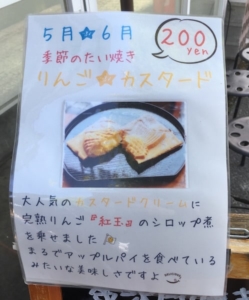 5月☆6月
200
yen
季節のたい焼き
りんご☆カスタード
大人気のカスタードクリームに
完熟りんご『紅玉』のシロップ煮
を乗せました
まるでアップルパイを食べている
みたいな美味しさですよ